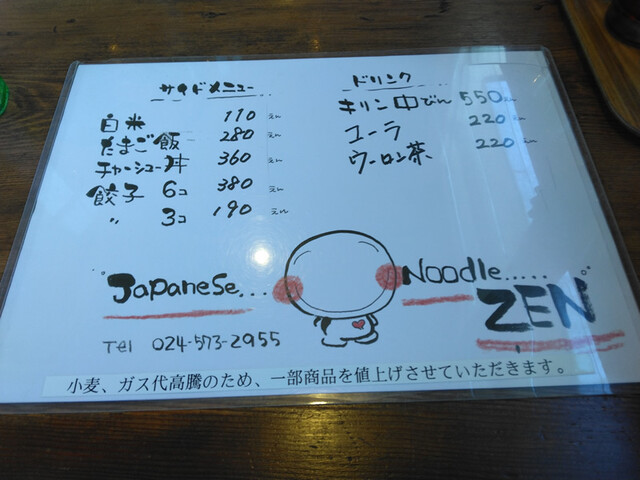 サイドメニュー
白米 110えん
たまご飯 280えん
チャーシュー丼 360えん
餃子 6コ 380えん
〃 3コ 190えん
ドリンク
キリン中びん 550えん
コーラ 220えん
ウーロン茶 220えん
"Japanese... Noodle..... "
ZEN
Tel 024-573-2955
小麦、ガス代高騰のため、一部商品を値上げさせていただきます。